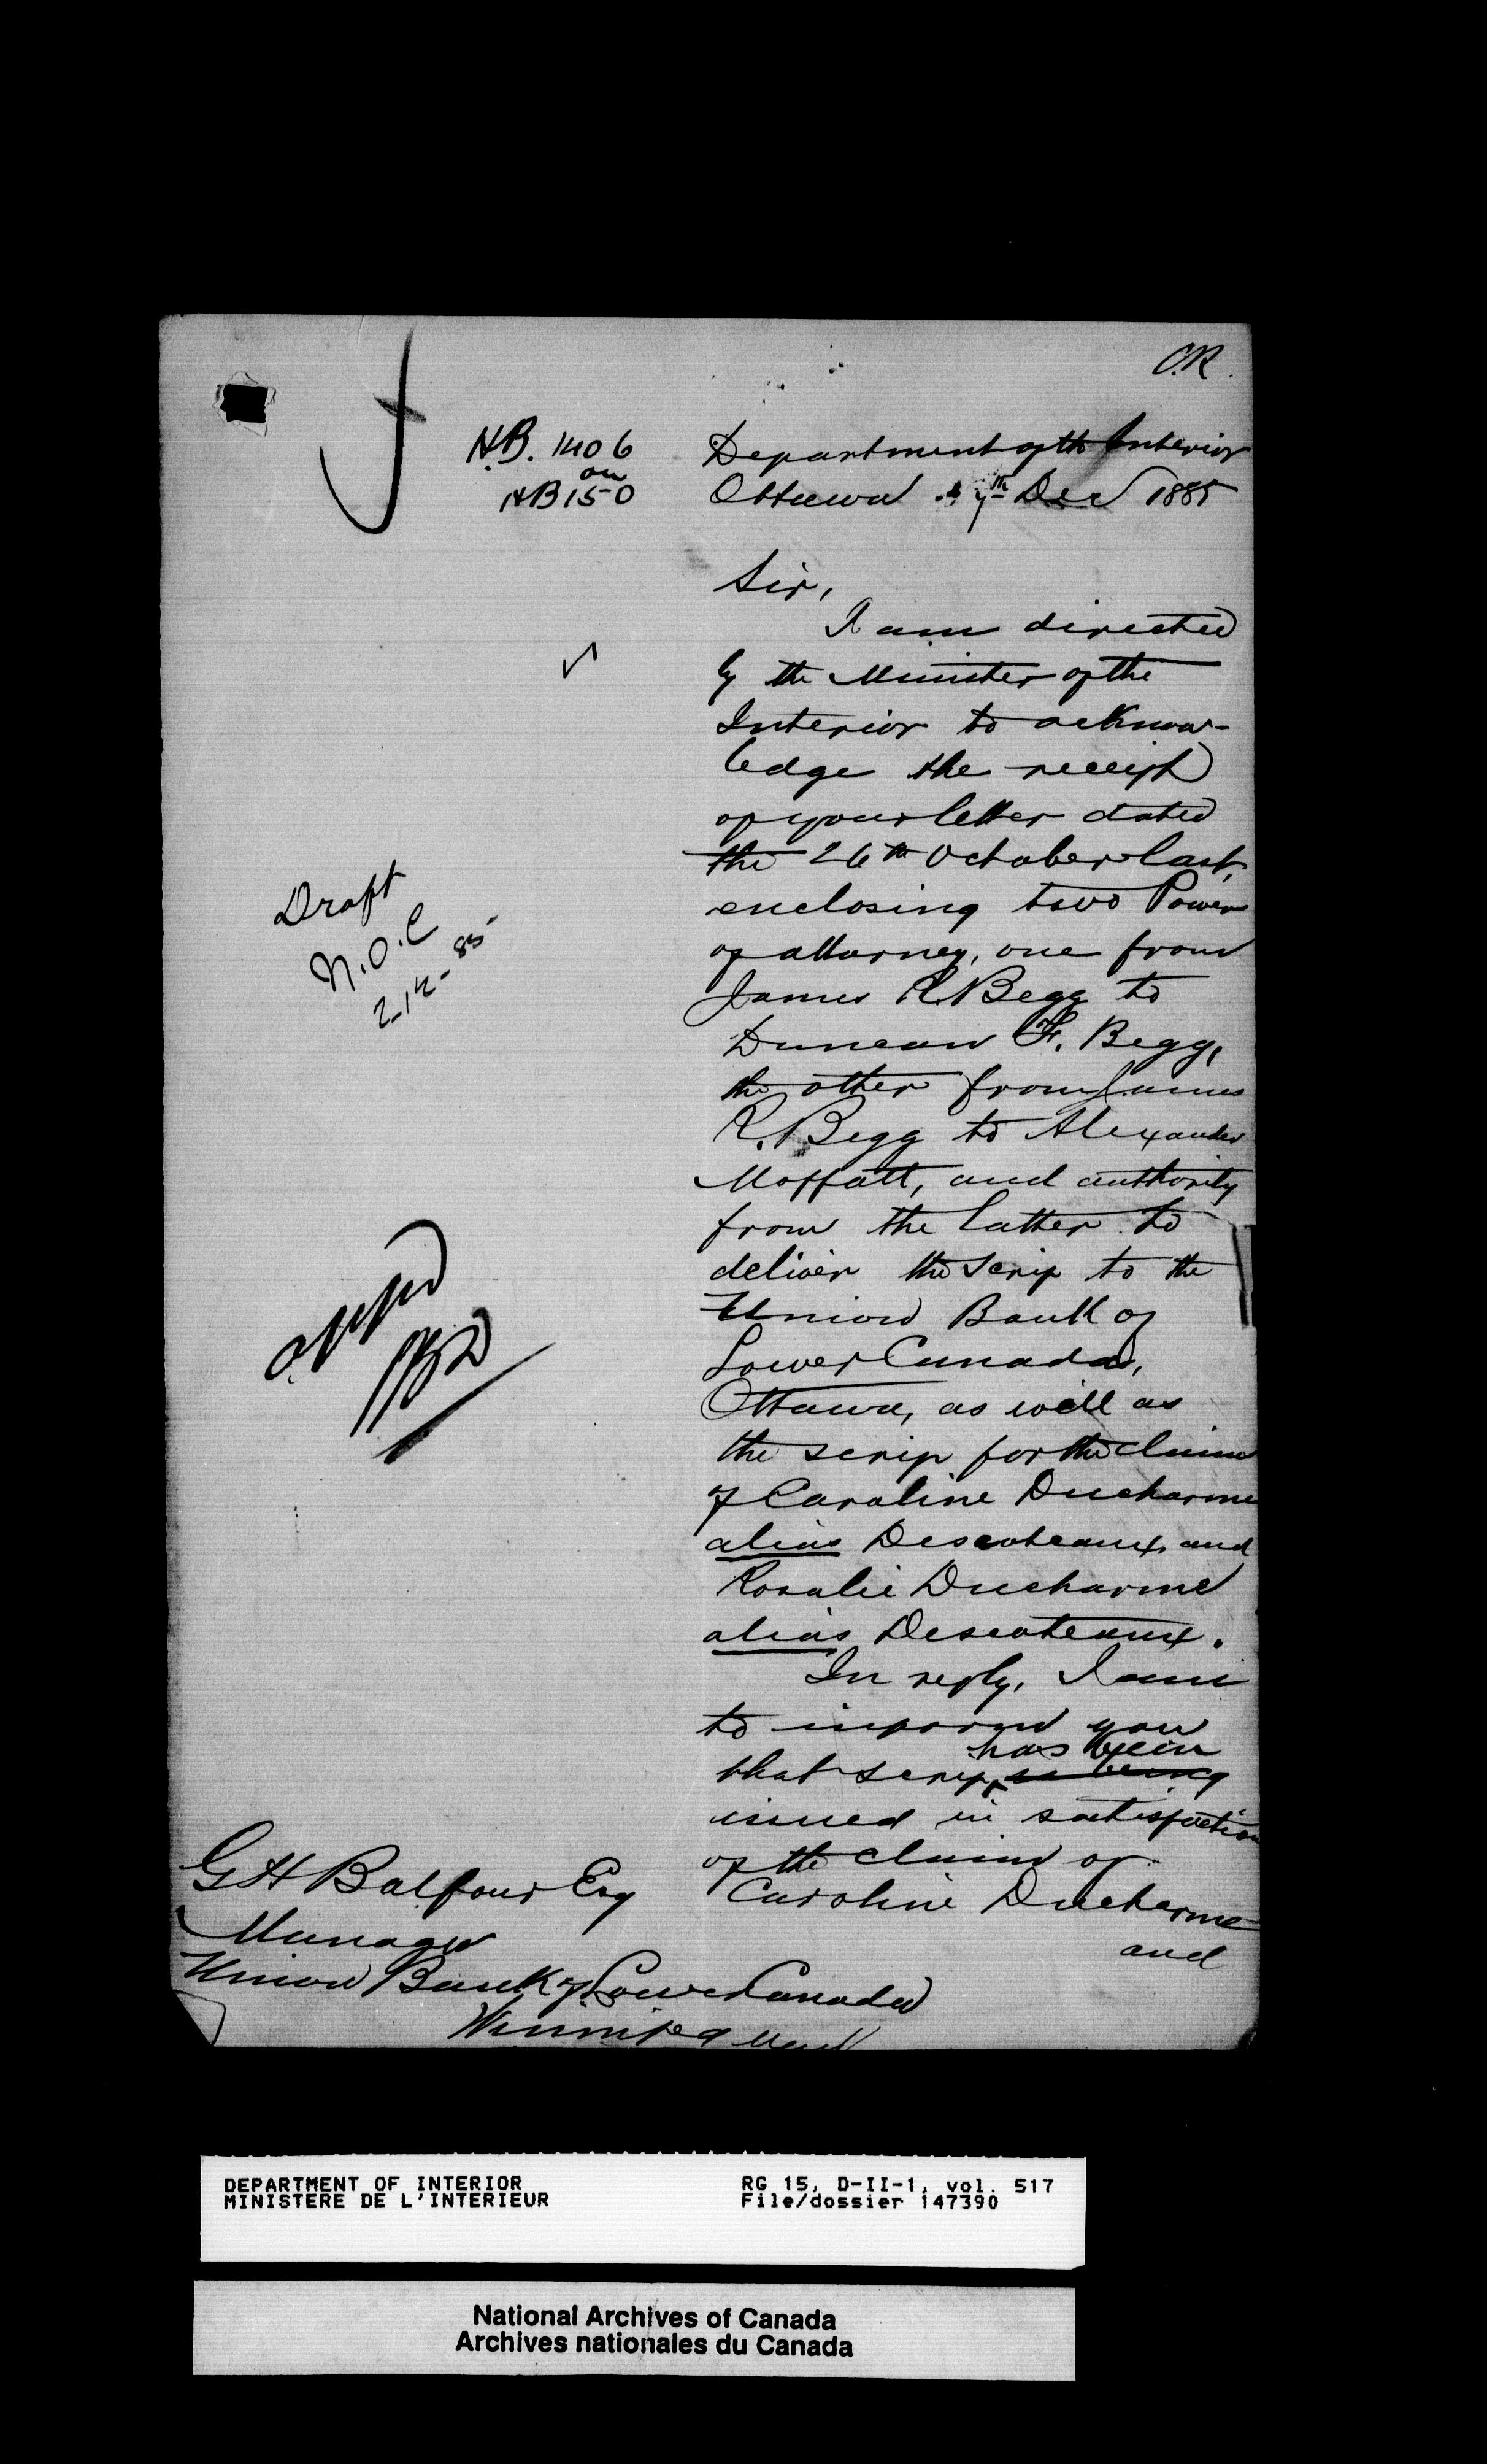 C.R.
H.B. 1406
on
HB 150
Department of the Interior
Ottawa 7th Dec 1885
Sir,
I am directed
by the Minister of the
Interior to acknow-
ledge the receipt
of your letter dated
the 26th October last,
enclosing two Powers
of attorney, one from
James R. Begg to
Duncan F. Begg,
the other from James
R. Begg to Alexander
Moffatt, and authority
from the latter to
deliver the scrip to the
Union Bank of
Lower Canada,
Ottawa, as well as
the scrip for the claim
of Caroline Ducharme
alias Descoteaux, and
Rosalie Ducharme
alias Descoteaux.
In reply, I am
to inform you
has been
that scrip is being
issued in satisfaction
of the claim of
Caroline Ducharme
and
Draft
N.O.C
2-12-85-
G H Balfour Esq
Manager
Union Bank of Lower Canada
Winnipeg
DEPARTMENT OF INTERIOR
MINISTERE DE L'INTERIEUR
RG 15, D-II-1, vol. 517
File/dossier 147390
National Archives of Canada
Archives nationales du Canada